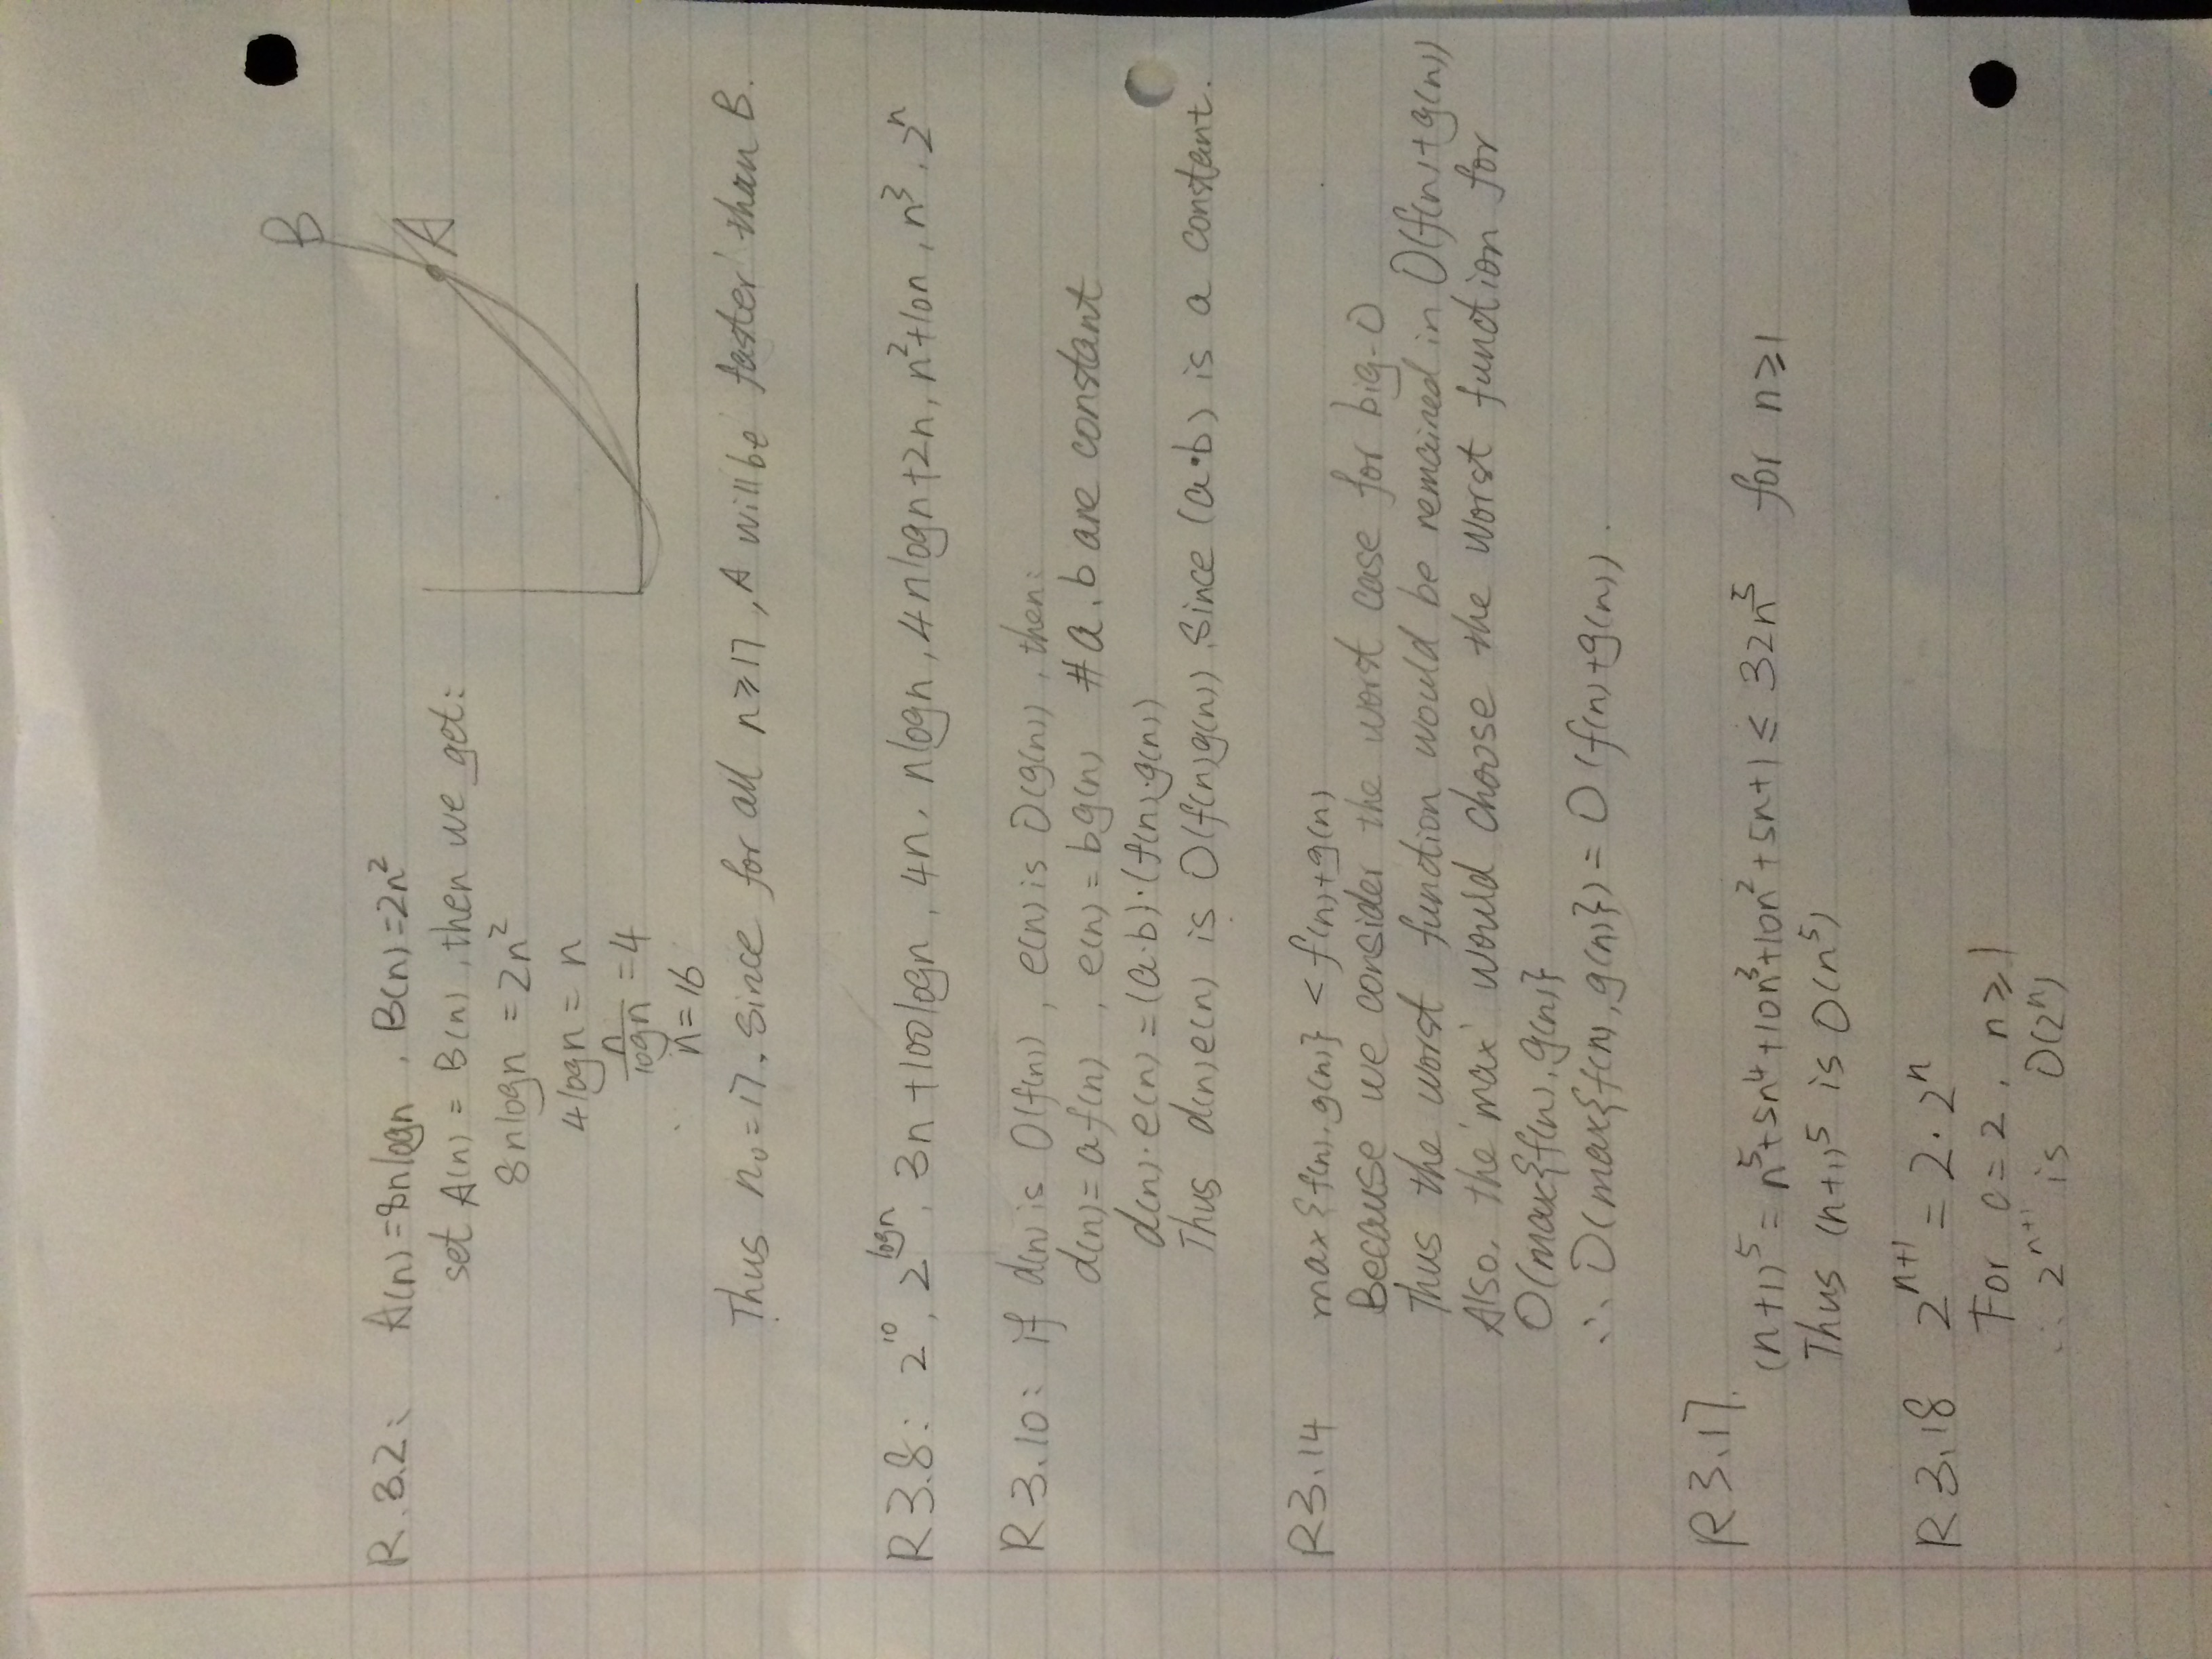 B
R.3.2: A(n)=8nlogn, B(n)=2n²
A
set A(n) = B(n), then we get:
8nlogn = 2n²
4logn = n
n/logn = 4
n=16
Thus n₀=17. since for all n≥17, A will be faster than B.
R3.8: 2^10, 2^logn, 3n+100logn, 4n, nlogn, 4nlogn+2n, n²+10n, n³, 2^n
R3.10: if d(n) is O(f(n)), e(n) is O(g(n)), then:
d(n)=af(n), e(n)=bg(n) #a.b are constant
d(n)·e(n)=(a·b)·(f(n)·g(n))
Thus d(n)e(n) is O(f(n)g(n)) Since (a·b) is a constant.
R3.14 max{f(n), g(n)} < f(n)+g(n)
Because we consider the worst case for big-O
Thus the worst function would be remained in O(f(n)+g(n))
Also, the 'max' would choose the worst function for
O(max{f(n), g(n)}
∴ O(max{f(n), g(n)}) = O(f(n)+g(n)).
R3.17.
(n+1)⁵ = n⁵+5n⁴+10n³+10n²+5n+1 ≤ 32n⁵ for n≥1
Thus (n+1)⁵ is O(n⁵)
R3.18 2^{n+1} = 2·2^n
For c=2, n≥1
∴ 2^{n+1} is O(2^n)